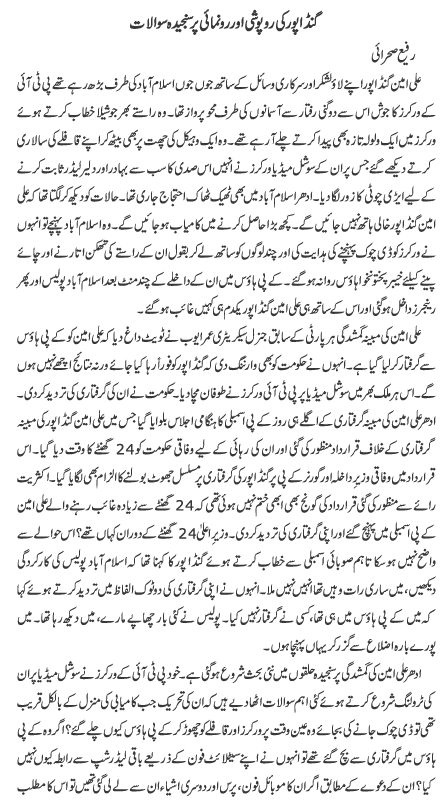 گنڈاپور کی روپوشی اور رونمائی پر سنجیدہ سوالات
رفیع صحرائی
علی امین گنڈاپور اپنے لاؤ لشکر اور سرکاری وسائل کے ساتھ جوں جوں اسلام آباد کی طرف بڑھ رہے تھے پی ٹی آئی
کے ورکرز کا جوش اس سے دوگنی رفتار سے آسمانوں کی طرف محوِ پرواز تھا۔ وہ راستے بھر جوشیلا خطاب کرتے ہوئے
ورکرز میں ایک ولولہ تازہ بھی پیدا کرتے چلے آ رہے تھے۔ وہ ایک وہیکل کی چھت پر بھی بیٹھ کر اپنے قافلے کی سالاری
کرتے دیکھے گئے جس پر ان کے سوشل میڈیا ورکرز نے انہیں اس صدی کا سب سے بہادر اور دلیر لیڈر ثابت کرنے
کے لیے ایڑی چوٹی کا زور لگا دیا۔ ادھر اسلام آباد میں بھی ٹھیک ٹھاک احتجاج جاری تھا۔ حالات کو دیکھ کر لگتا تھا کہ علی
امین گنڈاپور خالی ہاتھ نہیں جائیں گے۔ کچھ بڑا حاصل کرنے میں کامیاب ہو جائیں گے۔ وہ اسلام آباد پہنچے تو انہوں
نے ورکرز کو ڈی چوک پہنچنے کی ہدایت کی اور چند لوگوں کو ساتھ لے کر بقول ان کے راستے کی تھکن اتارنے اور چائے
پینے کیلئے خیبر پختونخوا ہاؤس روانہ ہو گئے۔ کے پی ہاؤس میں ان کے داخلے کے چند منٹ بعد اسلام آباد پولیس اور پھر
رینجرز داخل ہو گئی اور اس کے ساتھ ہی علی امین گنڈاپور یکدم ہی کہیں غائب ہو گئے۔
علی امین کی مبینہ گمشدگی پر پارٹی کے سابق جنرل سیکریٹری عمر ایوب نے ٹویٹ داغ دیا کہ علی امین کو کے پی ہاؤس
سے گرفتار کر لیا گیا ہے۔ انہوں نے حکومت کو بھی وارننگ دی کہ گنڈاپور کو فوراً رہا کیا جائے ورنہ نتائج اچھے نہیں ہوں
گے۔ اس پر ملک بھر میں سوشل میڈیا پر پی ٹی آئی ورکرز نے طوفان مچا دیا۔ حکومت نے ان کی گرفتاری کی تردید کر دی۔
ادھر علی امین کی مبینہ گرفتاری کے اگلے ہی روز کے پی اسمبلی کا ہنگامی اجلاس بلوایا گیا جس میں علی امین گنڈاپور کی مبینہ
گرفتاری کے خلاف قرارداد منظور کی گئی اور ان کی رہائی کے لیے وفاقی حکومت کو 24 گھنٹے کا وقت دیا گیا۔ اس
قرارداد میں وفاقی وزیرِ داخلہ اور گورنر کے پی پر گنڈاپور کی گرفتاری پر مسلسل جھوٹ بولنے کا الزام بھی لگایا گیا۔ اکثریت
رائے سے منظور کی گئی قرارداد کی گونج بھی ابھی ختم نہیں ہوئی تھی کہ 24 گھنٹے سے زیادہ غائب رہنے والے علی امین
کے پی اسمبلی میں پہنچ گئے اور اپنی گرفتاری کی تردید کر دی۔ وزیر اعلیٰ 24 گھنٹے کے دوران کہاں تھے؟ اس حوالے سے
واضح نہیں ہو سکا تاہم صوبائی اسمبلی سے خطاب کرتے ہوئے گنڈاپور کا کہنا تھا کہ اسلام آباد پولیس کی کارکردگی
دیکھیں، میں ساری رات وہیں تھا انہیں نہیں ملا۔ انہوں نے اپنی گرفتاری کی دوٹوک الفاظ میں تردید کرتے ہوئے کہا
کہ میں کے پی ہاؤس میں ہی تھا، کسی نے گرفتار نہیں کیا۔ پولیس نے کئی بار چھاپے مارے، میں دیکھ رہا تھا۔ میں
پورے بارہ اضلاع سے گزر کر یہاں پہنچا ہوں۔
ادھر علی امین کی گمشدگی پر سنجیدہ حلقوں میں نئی بحث شروع ہو گئی ہے۔ خود پی ٹی آئی کے ورکرز نے سوشل میڈیا پر ان
کی ٹرولنگ شروع کرتے ہوئے کئی اہم سوالات اٹھا دیے ہیں کہ ان کی تحریک جب کامیابی کی منزل کے بالکل قریب
تھی تو ڈی چوک جانے کی بجائے وہ عین وقت پر ورکرز اور قافلے کو چھوڑ کر کے پی ہاؤس کیوں چلے گئے؟ اگر وہ کے پی
ہاؤس میں گرفتاری سے بچ گئے تھے تو انہوں نے اپنے سیٹلائٹ فون کے ذریعے باقی لیڈرشپ سے رابطہ کیوں نہیں
کیا؟ ان کے دعوے کے مطابق اگر ان کا موبائل فون، پرس اور دوسری اشیاء ان سے لے لی گئی تھیں تو اس کا مطلب